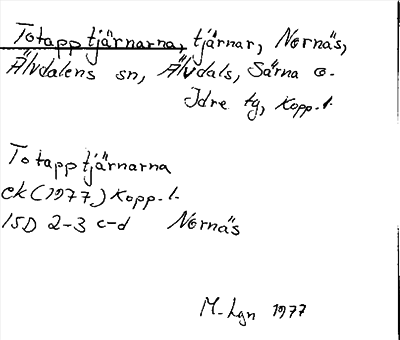 Totapptjärnarna, tjärnar, Nornäs,
Älvdalens sn, Älvdals, Särna o.
Idre tg, Kopp. l.
Totapptjärnarna
ek (1977) Kopp. l.
15D 2-3 c-d Nornäs
M-Lgn 1977